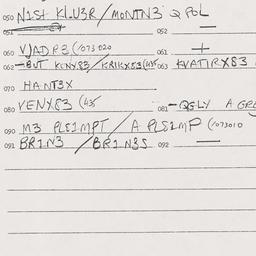 050 N1SH KLU3R / MONTN3 Q POL
051 052 —
060 VJADR3 (/073020 061 +
062 —BUT KCNYX3 / KRIKX53 (435 063 KVATIRX53
070 HANT3X
080 VENX53 (435 081 —QGLY A GRE
090 M3 PLS1MPT / A PLS1MP (/073010
091 BR1N3 / BR1N3S 092 —